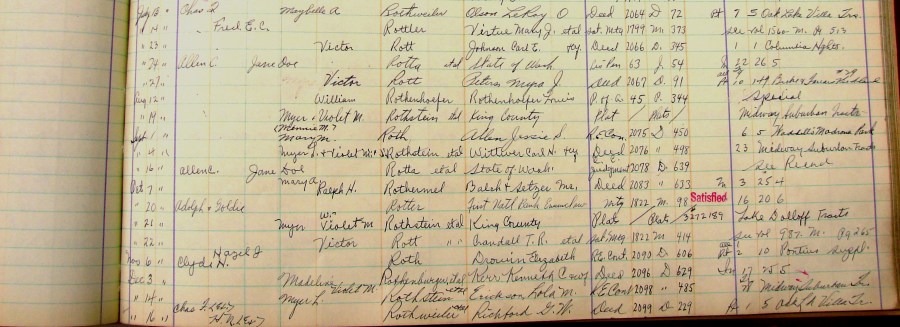 July 13 Chas R Maybelle A Rothweiler Olson LeRoy O Deed 2064 D 72 Pt 7 5 Oak Lake Villa Trs.
" 14 Fred E. C. Rottler Virtue Mary J. etal Sat. Mtg 1749 M. 373 see vol 1560 M. Pg 513
" 23 Victor Rott Johnson Carl E. Deed 2066 D. 345 1 1 Columbia Hghts.
" 24 Allen C. Jane Doe Rotta etal State of Wash Lis Pen 63 J. 54 22 26 5
" 29 Victor Rott Deed 2067 D. 91 10
Aug 12 William Rothenhoefer Rothenhoefer Louis P. of A. 45 P. 344 Special
" 19 Myer & Violet M. Rothstein etal King County Plat / Plats / Midway Suburban Tracts
Sept 1 (Monnie M.?) Mary M. Roth Allen Jessie S. RE Con. 2075 D 450 6 5 Madrona Park
" 4 Myer L. & Violet M. Rothstein etal Wittwer Carl H. Deed 2076 " 498 23 Midway Suburban Tracts
" 16 Allen C. Jane Doe Rotta etal State of Wash. Judgment 2078 D 639 see Record
Oct 7 Mary A. Ralph H. Rothermel Balch & Setzer Inc. Deed 2083 " 633 3 25 4
" 20 Adolph & Goldie Rotter First Natl Bank Enumclaw Mtg 1822 M. 98 Satisfied 16 20 6
" 21 Myer Violet M Rothstein etal King County Plat / Plats / 3272189 Lake Dolloff Tracts
" 22 Victor Rott " " Crandall T. R. etal Sat. Mtg 1822 M 414 see vol 987 M. Pg 265
Nov 6 Hazel J Clyde H. Roth Drowin Elizabeth RE. Cont. 2090 D 606 2 10 Pontius Suppl.
Dec 3 Madeline Rothenburger etal Kerr Kenneth Deed 2096 D 629 17 25 5
" 14 Myer L. Violet M. Rothstein etal Erickson Lola M. RE Cont 2098 " 485 28 Midway Suburban Trs
" 16 Chas Rothweiler etal Richford G. W. Deed 2099 D 229 1 5 Oak Lk Villa Trs.